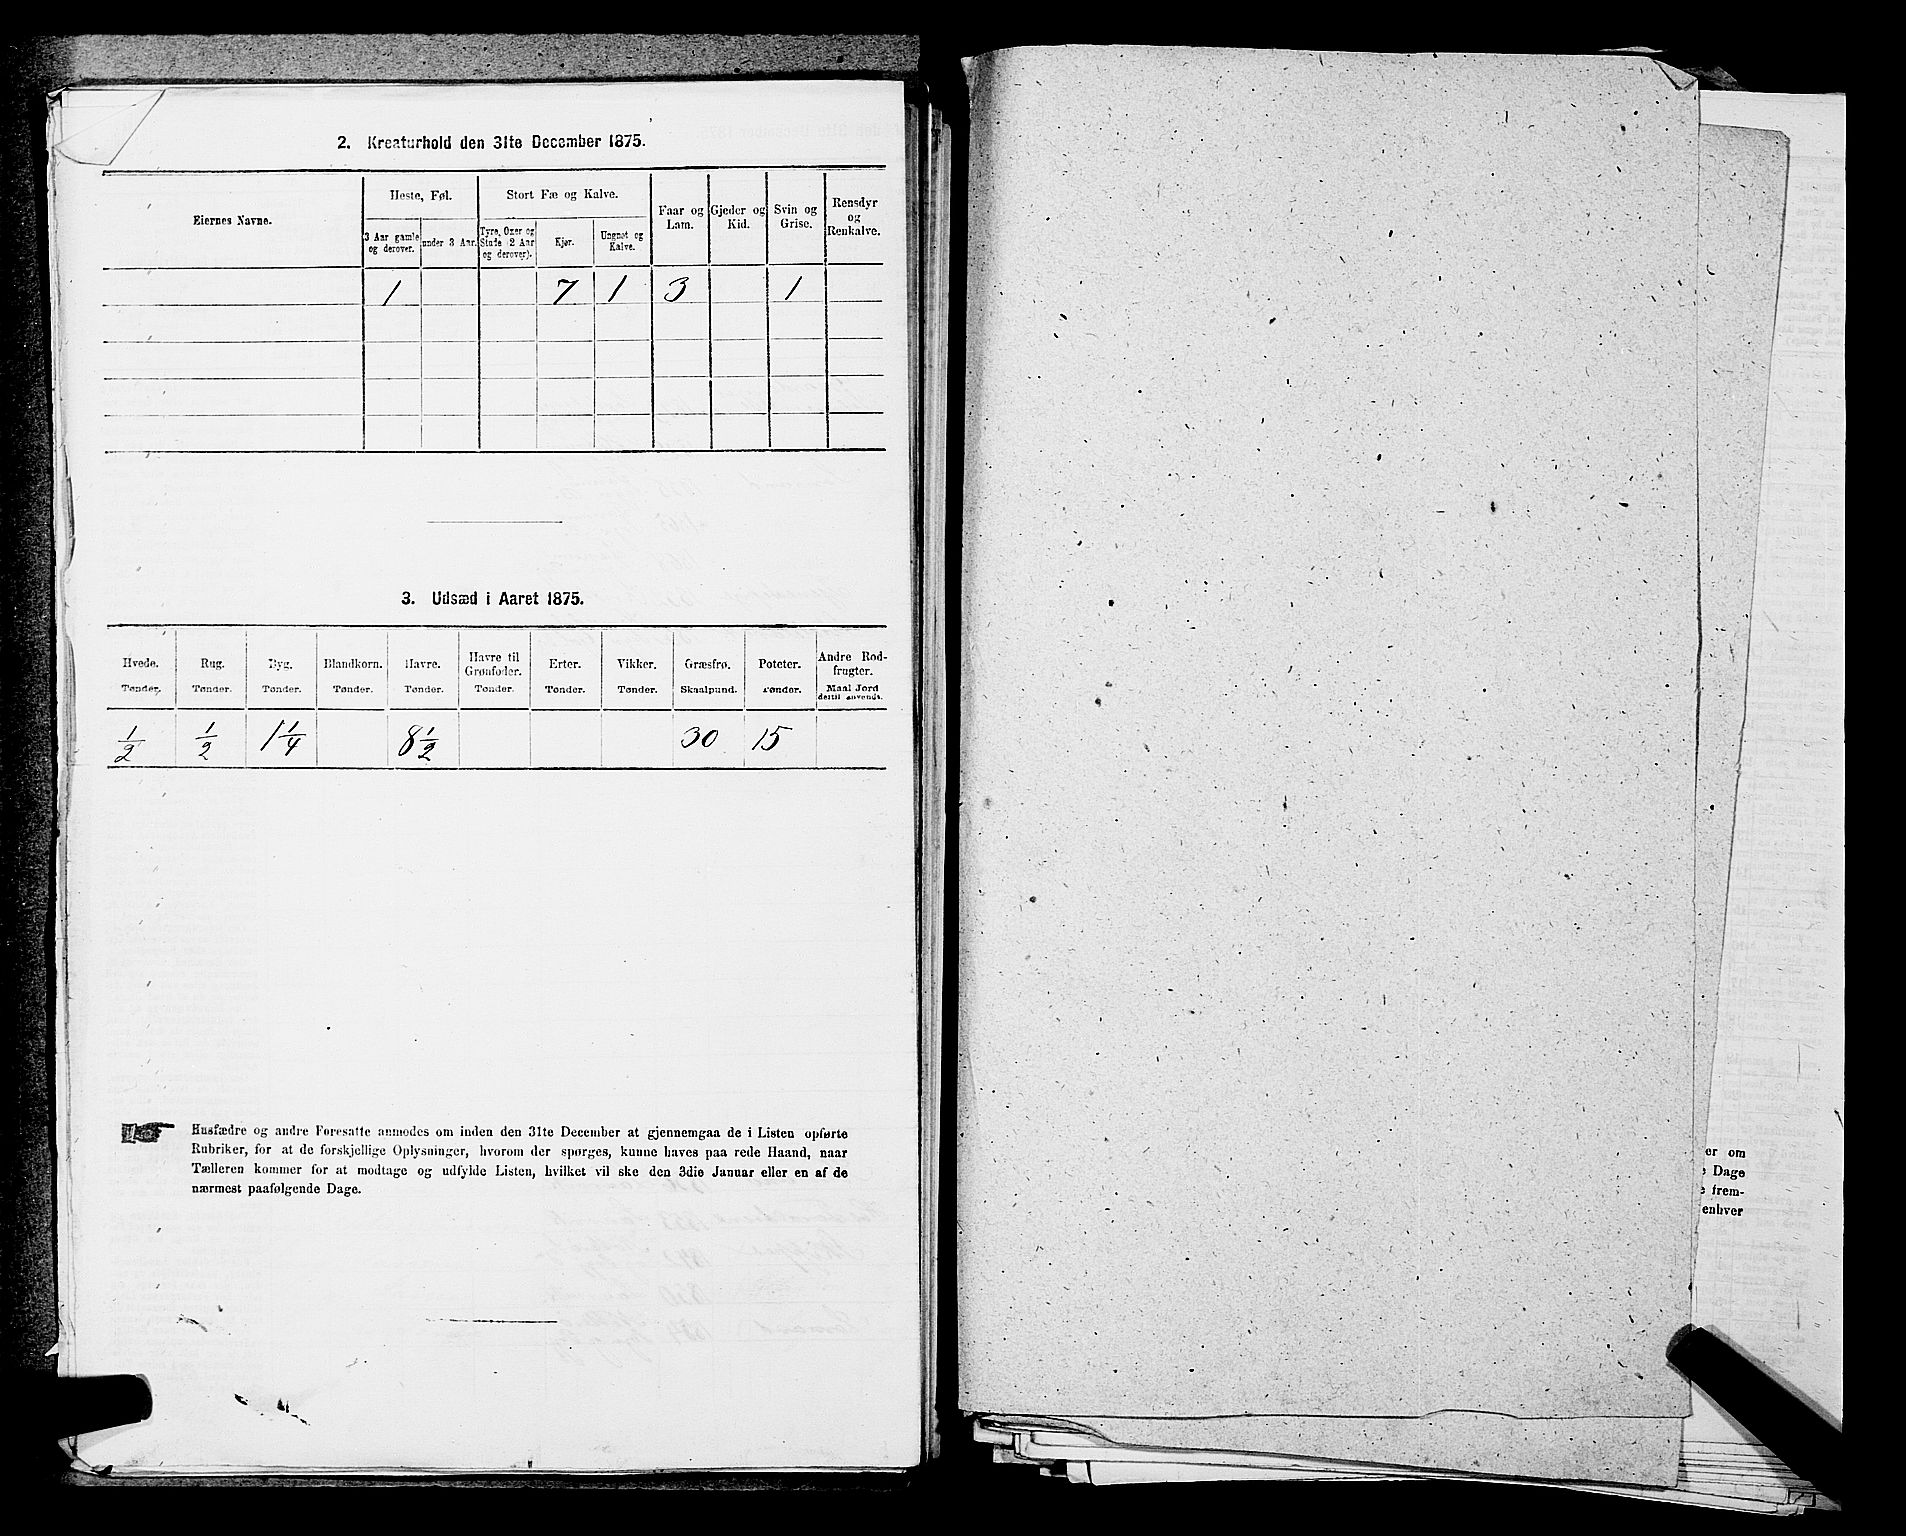 2. Kreaturhold den 31te December 1875.
Eiernes Navne.
Heste, Føl.
Stort Fæ og Kalve.
Faar og Lam.
Gjeder og Kid.
Svin og Grise.
Rensdyr og Renkalve.
3 Aar gamle og derover.
under 3 Aar.
Tyre, Oxer og Stude (2 Aar og derover).
Kjør.
Ungnøt og Kalve.
1 7 1 3 1
3. Udsæd i Aaret 1875.
Hvede. Rug. Byg. Blandkorn. Havre. Havre til Grønfoder. Erter. Vikker. Græsfrø. Poteter. Andre Rodfrugter.
Tønder. Tønder. Tønder. Tønder. Tønder. Tønder. Tønder. Tønder. Skaalpund. Tønder. Maal Jord dertil anvendt.
1/2 1/2 1 1/4 8 1/2 30 15
Husfædre og andre Foresatte anmodes om inden den 31te December at gjennemgaa de i Listen opførte
Rubriker, for at de forskjellige Oplysninger, hvorom der spørges, kunne haves paa rede Haand, naar
Tælleren kommer for at modtage og udfylde Listen, hvilket vil ske den 3die Januar eller en af de
nærmest paafølgende Dage.
er om
Dage
frem-
enhver